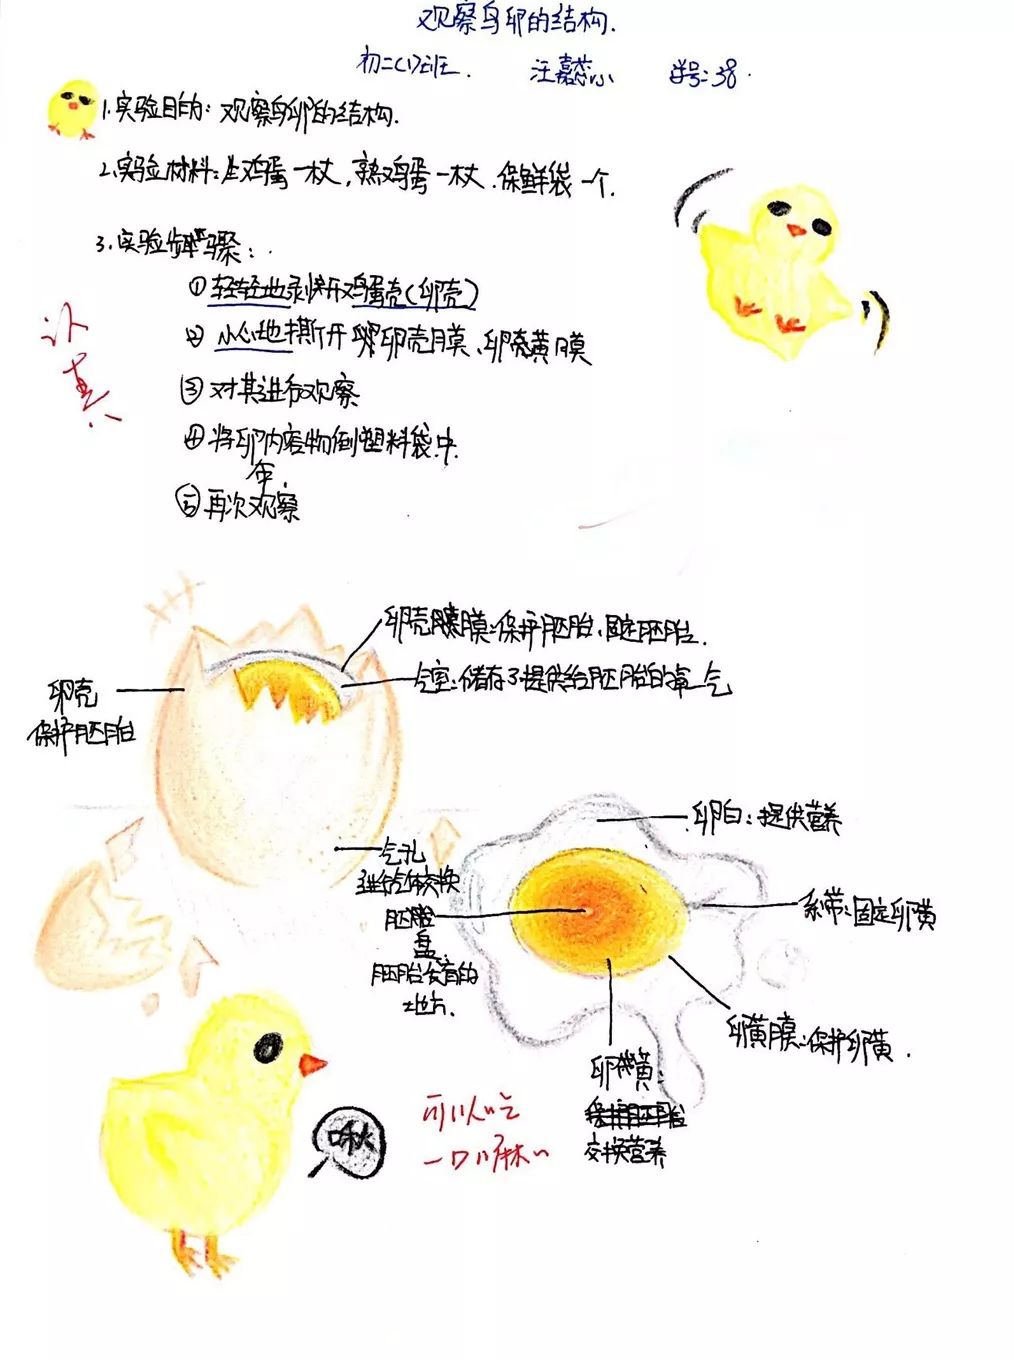 观察鸟卵的结构.
初二(1)班. 汪嘉蕊 学号:38.
1.实验目的:观察鸟卵的结构.
2.实验材料:生鸡蛋一枚,熟鸡蛋一枚.保鲜袋一个.
3.实验步骤:
①轻轻地剥开鸡蛋壳(卵壳)
②小心地撕开卵壳膜、卵黄膜
③对其进行观察
④将卵内容物倒塑料袋中.
⑤再次观察
认真.
卵壳膜:保护胚胎、固定胚胎.
气室:储存了提供给胚胎的氧气
卵壳
保护胚胎
卵白:提供营养
气孔
进行气体交换
系带:固定卵黄
胚胎
盘
胚胎发育的
地方.
卵黄膜:保护卵黄.
卵黄:
交换营养
啾
可以吃
一口麻